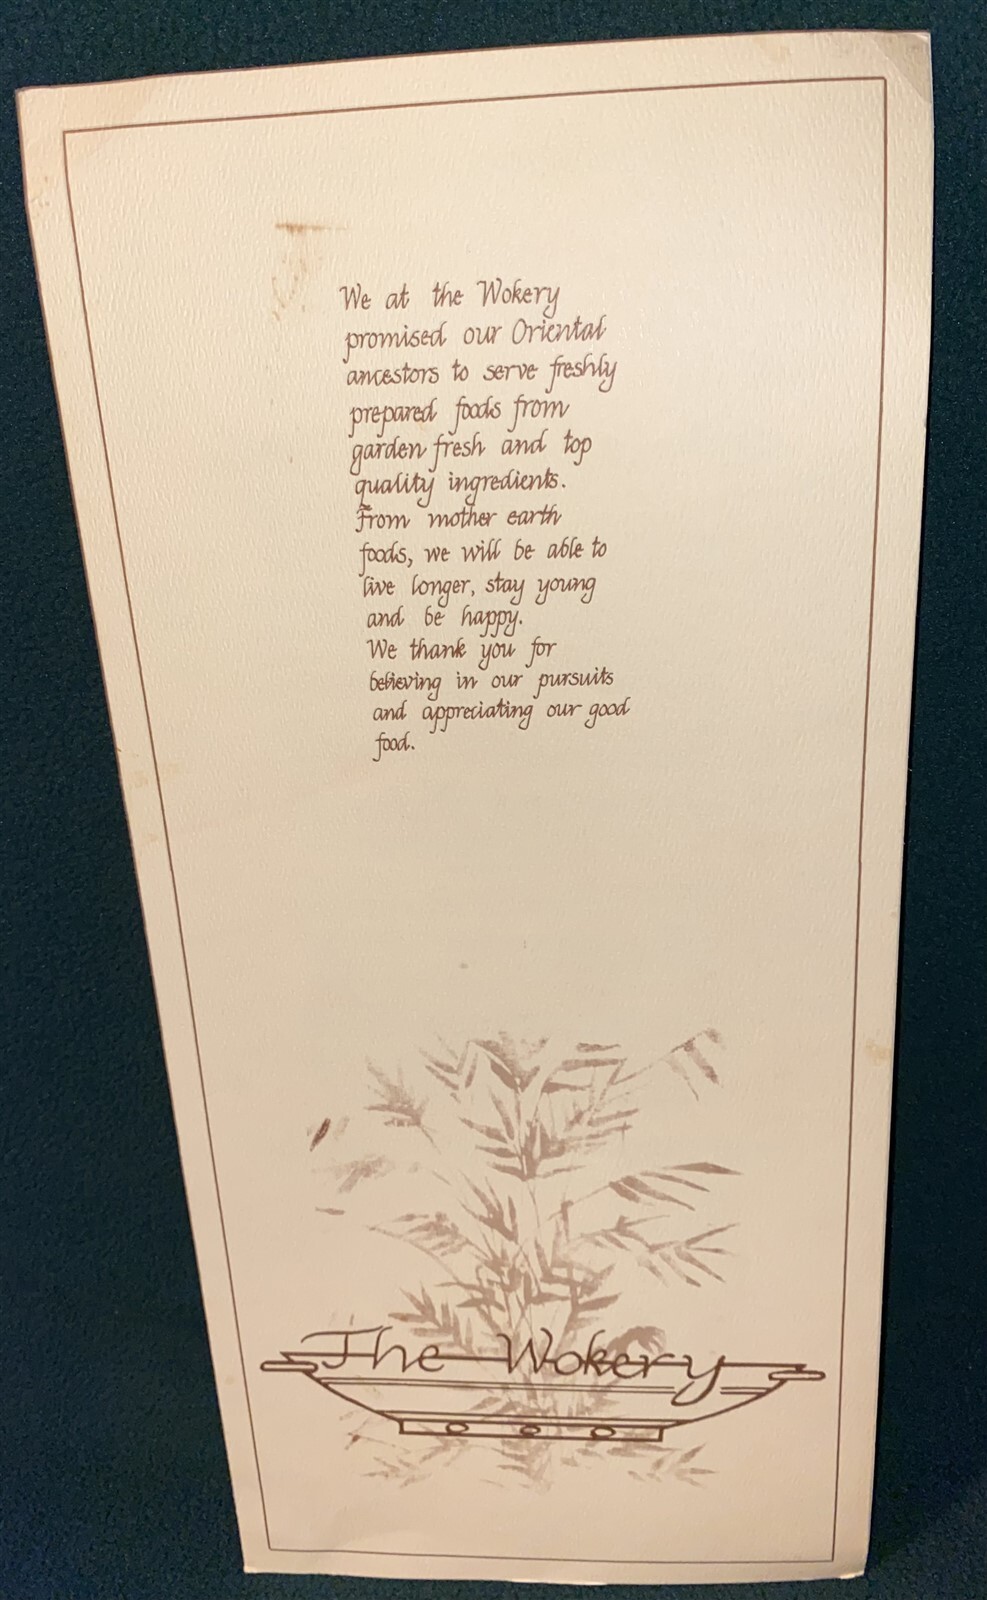 We at the Wokery
promised our Oriental
ancestors to serve freshly
prepared foods from
garden fresh and top
quality ingredients.
From mother earth
foods, we will be able to
live longer, stay young
and be happy.
We thank you for
believing in our pursuits
and appreciating our good
food.
The Wokery